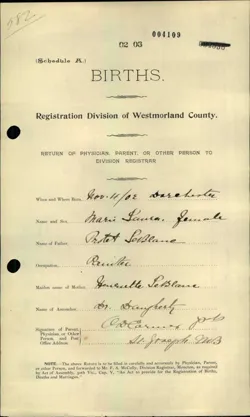 582
004109
02 03
(Schedule A.)
BIRTHS.
Registration Division of Westmorland County.
RETURN OF PHYSICIAN, PARENT, OR OTHER PERSON TO
DIVISION REGISTRAR
When and Where Born, Nov. 11/02 Dorchester
Name and Sex, Marie Laura, female
Name of Father, LeBlanc
Occupation,
Maiden name of Mother, Henriette LeBlanc
Name of Attendant, Dr. Daugherty
Signature of Parent,
Physician, or Other
Person and Post
Office Address
St. Joseph N.B.
NOTE.—The above Return is to be filled in carefully and accurately by Physician, Parent,
or other Person, and forwarded to Mr. F. A. McCully, Division Registrar, Moncton, as required by
Act of Assembly, 50th Vic., Cap. V, "An Act to provide for the Registration of Births,
Deaths and Marriages."